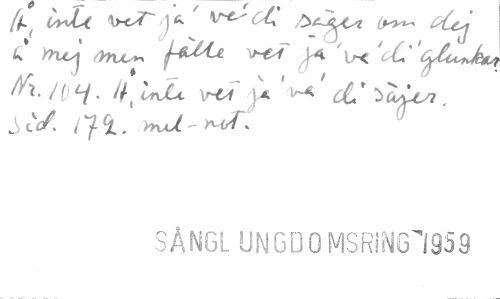 Å, inte vet ja' va' di säger om dej
å mej men fälle vet ja' va' di' glunkar.
Nr. 104. Å, inte vet ja' va' di säjer.
Sid. 172. mel-not.
SÅNGL UNGDOMSRING 1959